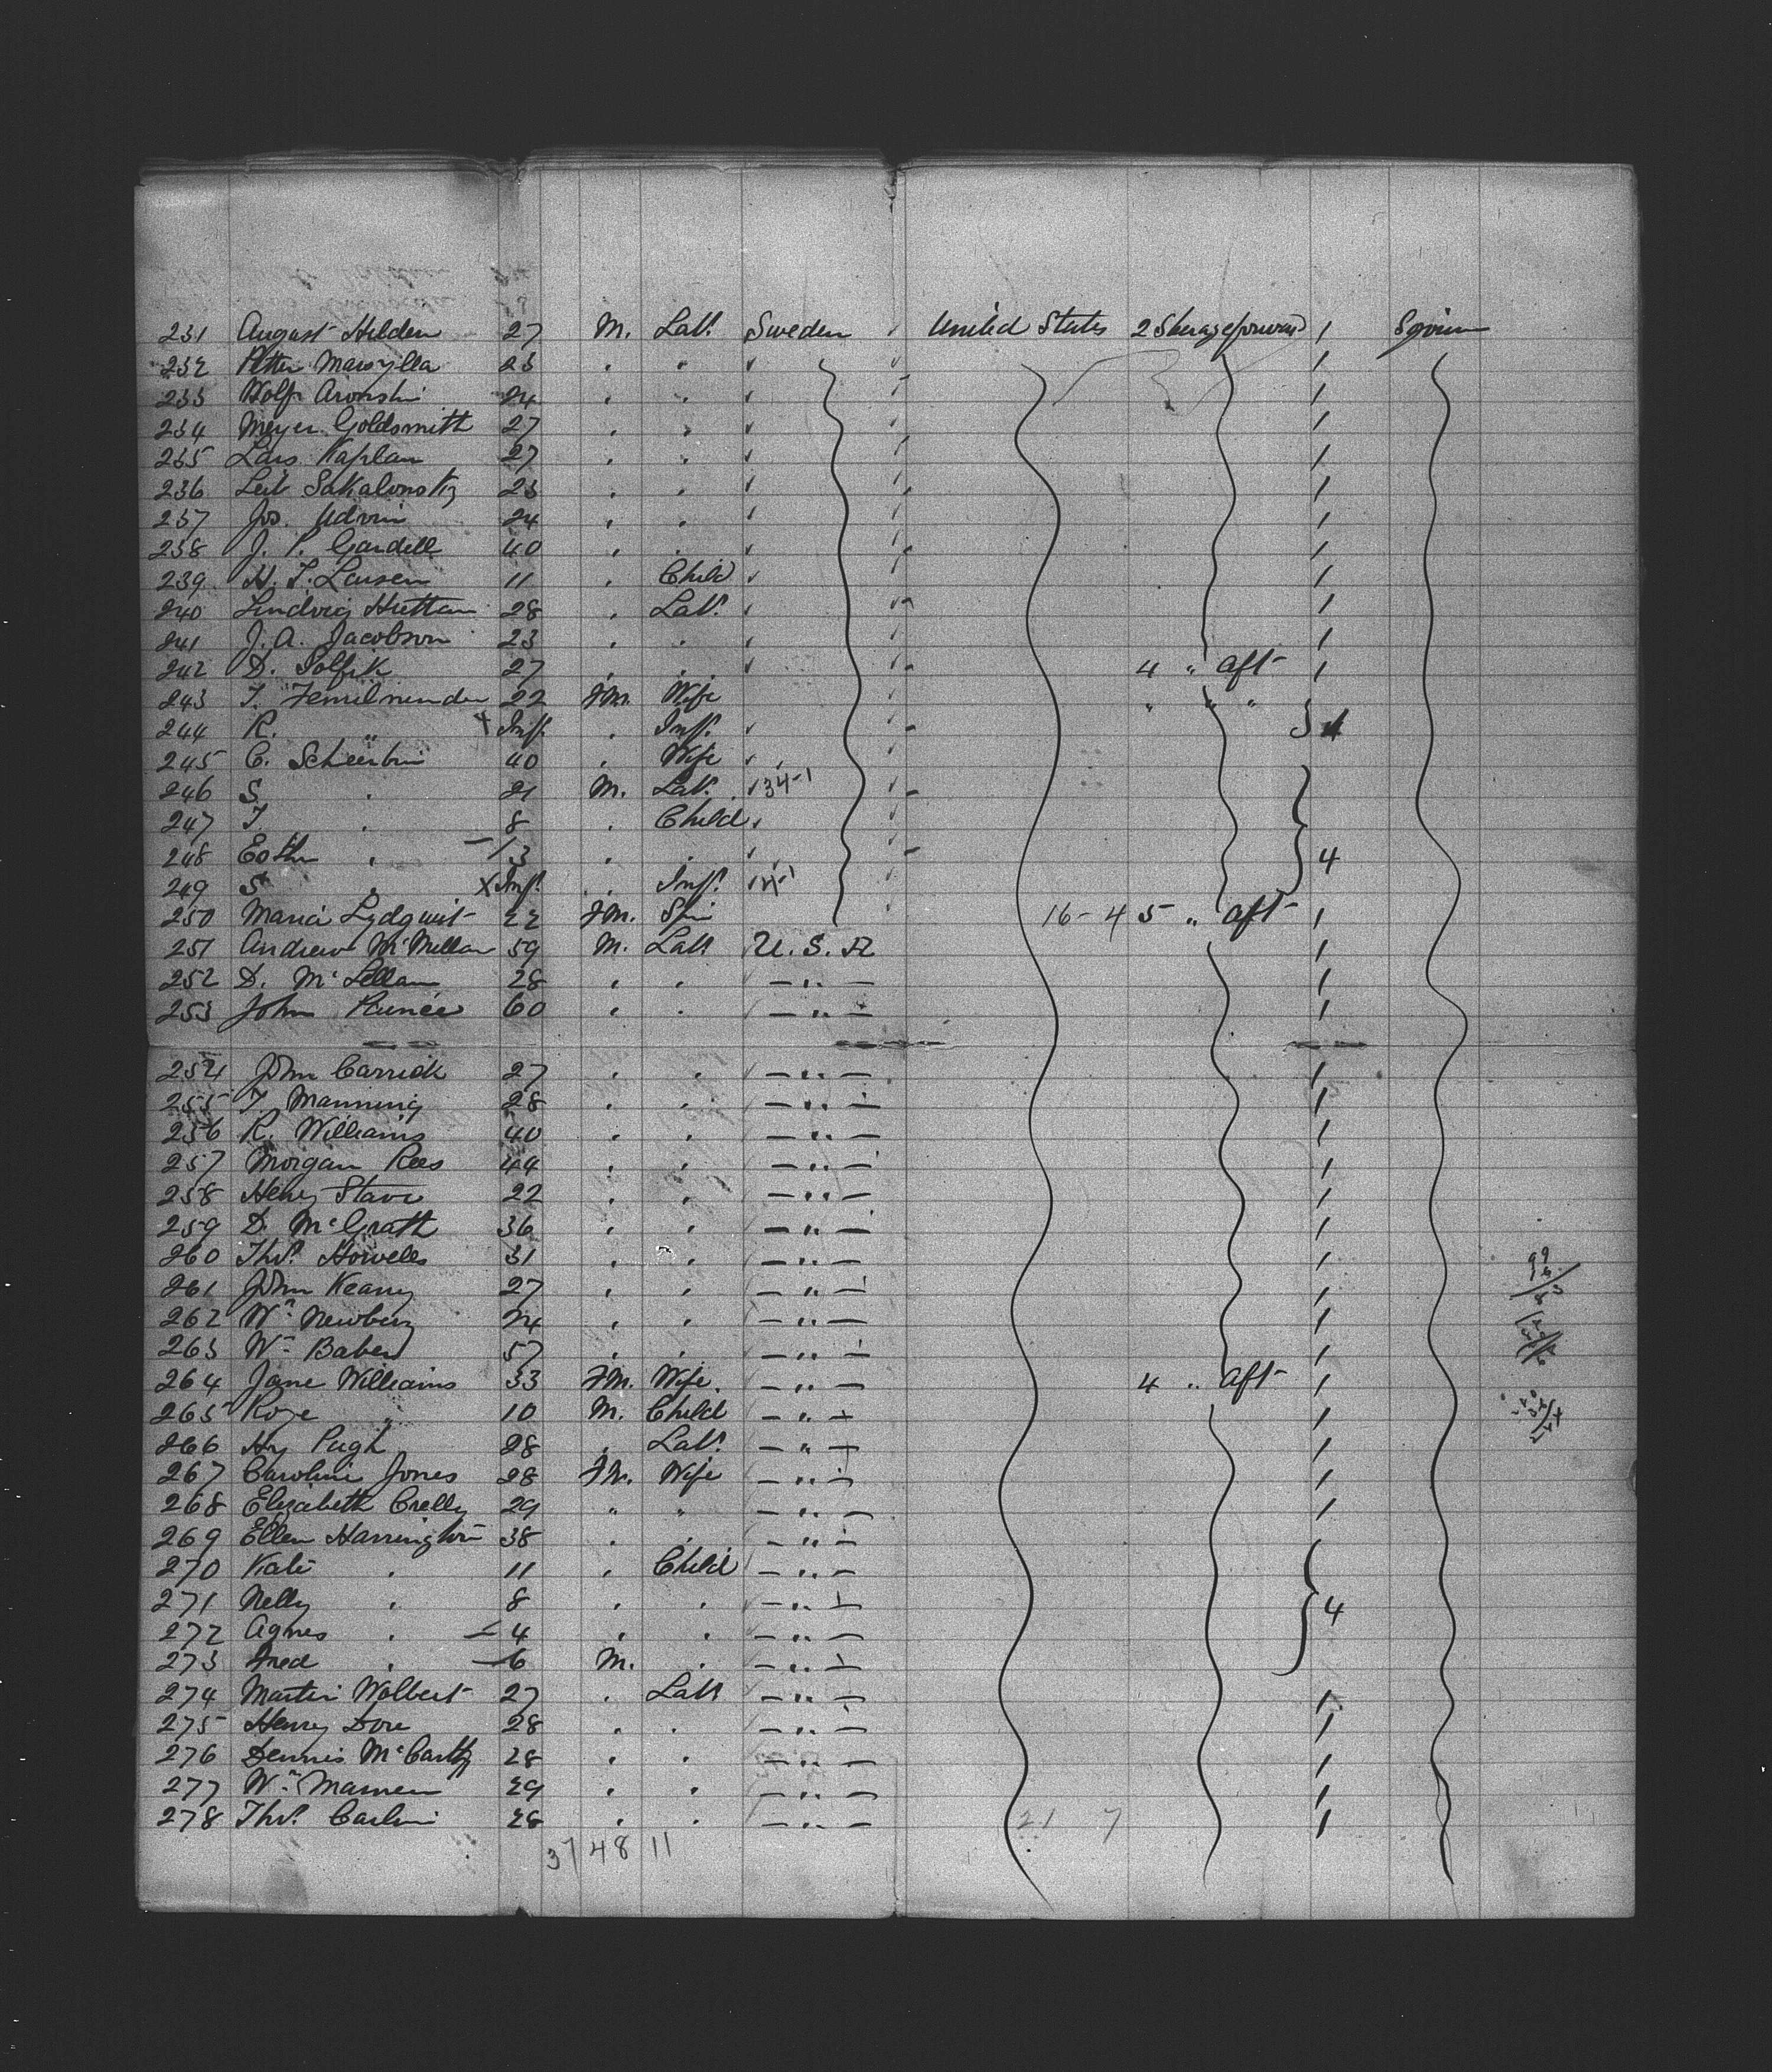 231 August Hilden 27 M. Lab. Sweden United States 2 Steerage forward 1 Sojourn
232 Peter 23 " "
233 Wolf Aronski 24 " "
234 Meyer Goldsmith 27 " "
235 Kaplan 27 " "
236 Leib 23 " "
237 Jos. 24 " "
238 J. P. Gardell 40 " "
239 H. J. Larsen 11 " Child
240 28 " Lab.
241 J. A. Jacobson 23 " "
242 D. 27 " " 4 " aft 1
243 22 Fm. Wife " " "
244 R. " Inft. " Inft. 3
245 C. 40 " Wife
246 S. " 21 M. Lab. 34-1
247 " 8 " Child
248 " 3 " " 4
249 S. " Inft. " Inft.
250 Maria Lydquist 22 Fm. Spin 16-4 5 " aft 1
251 Andrew McMillan 59 M. Lab U.S.A 1
252 D. McLellan 28 " " — " — 1
253 John 60 " " — " — 1
254 John Carrick 27 " " — " — 1
255 Manning 28 " " — " — 1
256 R. Williams 40 " " — " — 1
257 Morgan Rees 44 " " — " — 1
258 Henry 22 " " — " — 1
259 D. McGrath 36 " " — " — 1
260 Thos. Howells 31 " " — " — 1
261 John Keany 27 " " — " — 1
262 Wm. Newbury 24 " " — " — 1
263 Wm. Baber 57 " " — " — 1
264 Jane Williams 33 Fm. Wife — " — 4 " aft 1
265 " 10 M. Child — " — 1
266 Hy Pugh 28 " Lab. — " — 1
267 Caroline Jones 28 Fm. Wife — " — 1
268 Elizabeth Crelly 29 " " — " — 1
269 Ellen Harrington 38 " " — " —
270 Kate " 11 " Child — " —
271 Nelly " 8 " " — " — 4
272 Agnes " 4 " " — " —
273 Fred " 6 M. " — " —
274 Martin Wolbert 27 " Lab — " — 1
275 Henry Dore 28 " " — " — 1
276 Dennis McCarthy 28 " " — " — 1
277 Wm. 29 " " — " — 1
278 Thos. 28 " " — " — 21 7 1
37 48 11